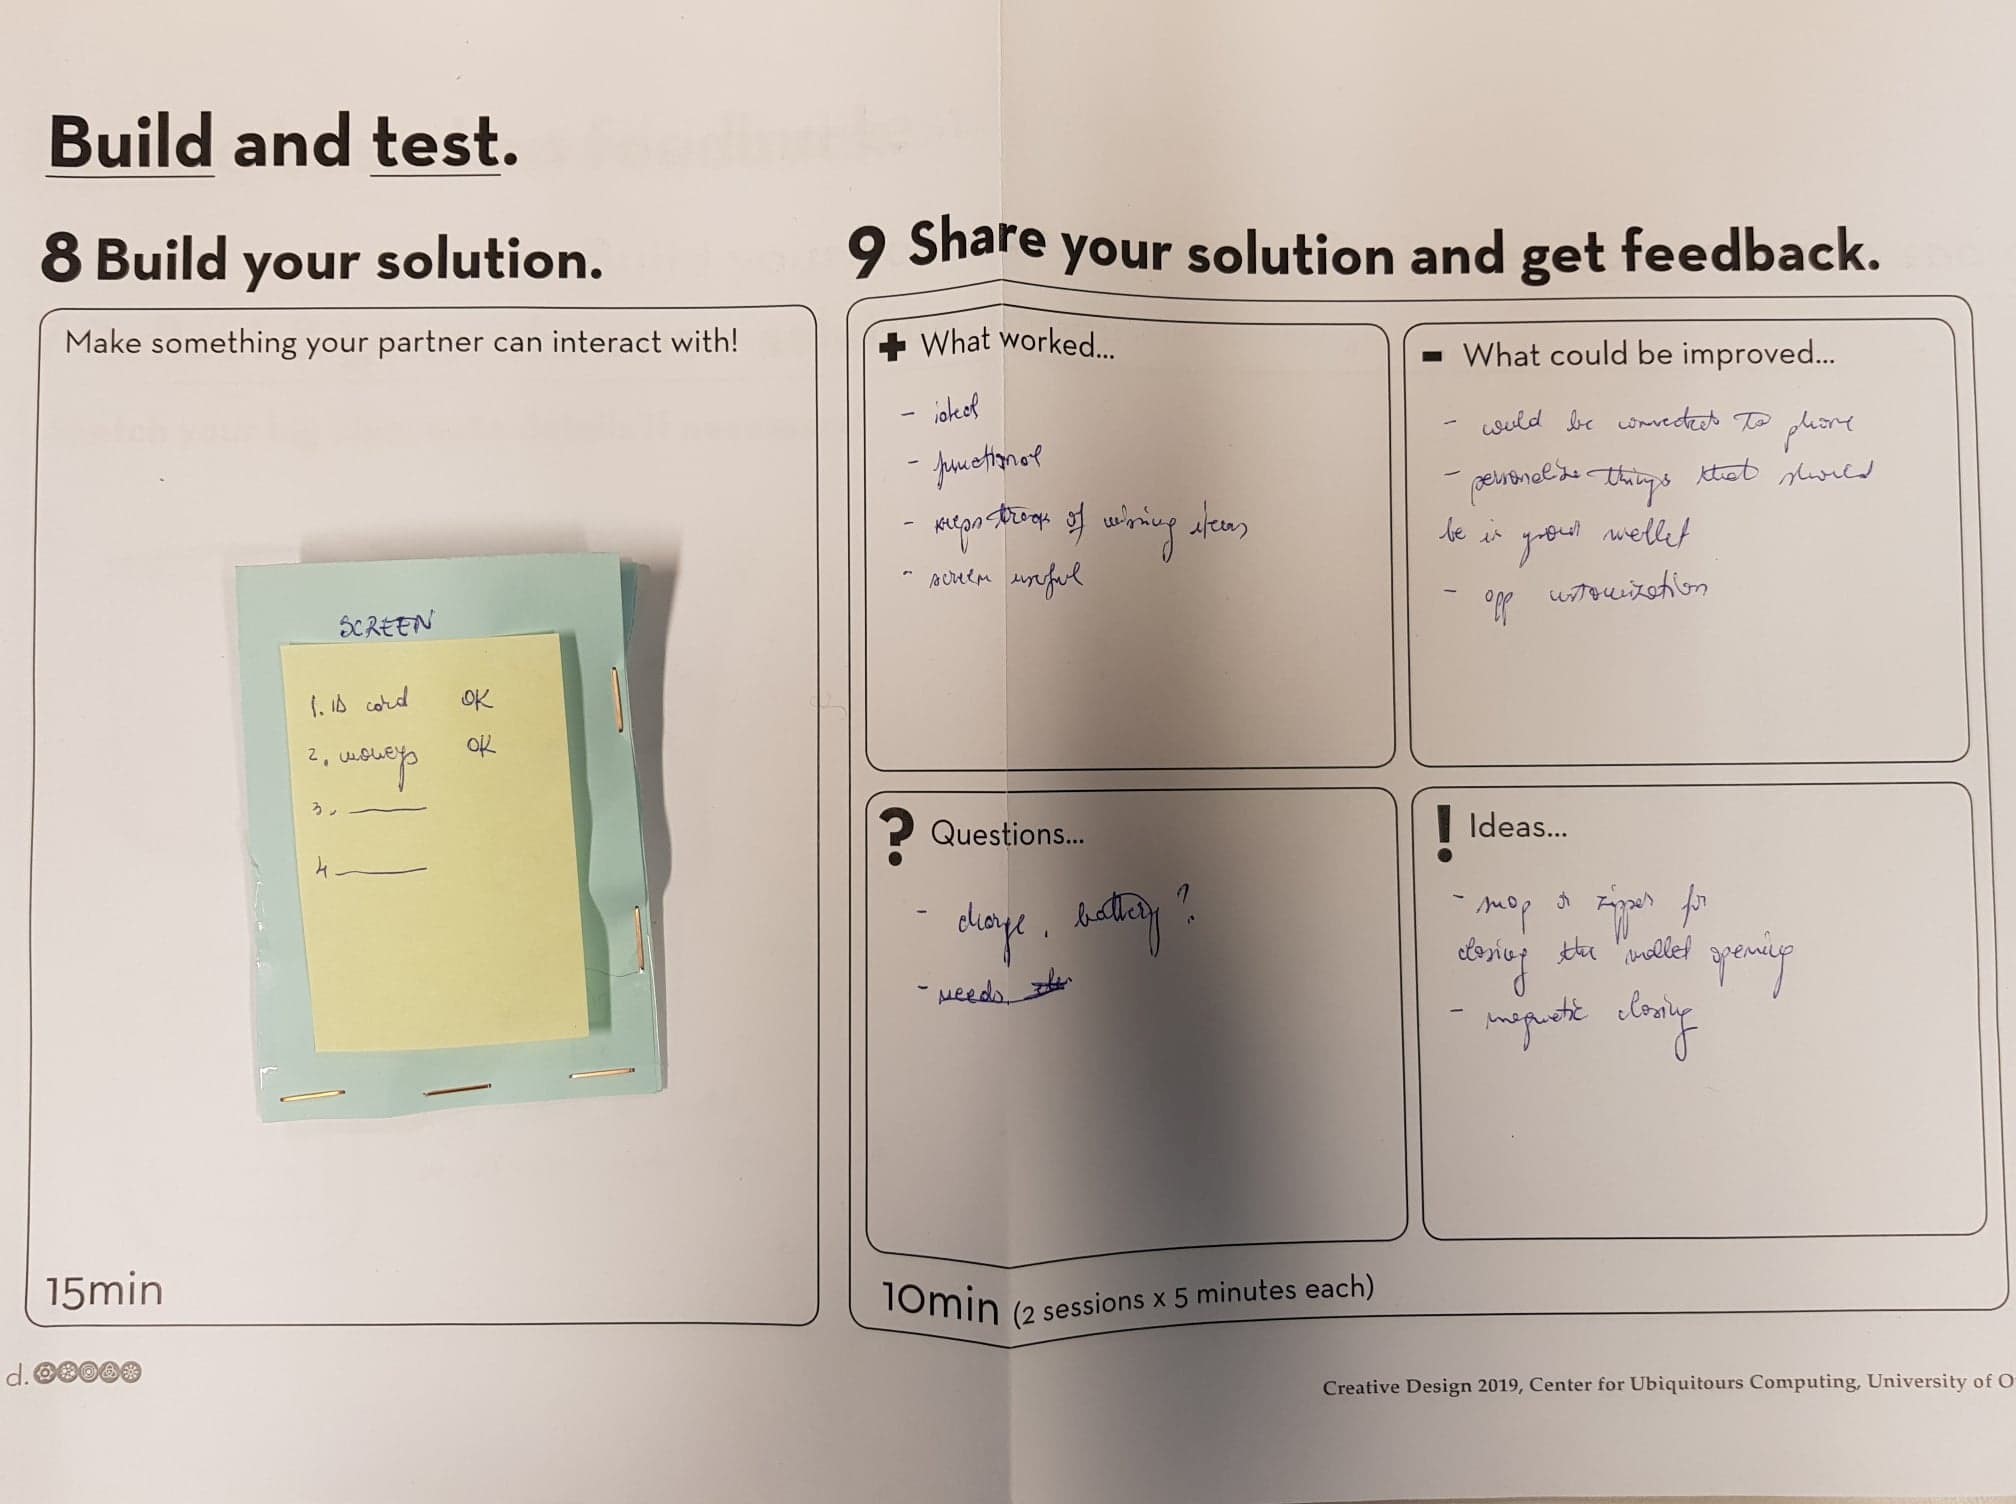 Build and test.
8 Build your solution.
Make something your partner can interact with!
SCREEN
1. ID card OK
2. moneys OK
3.
4
15min
9 Share your solution and get feedback.
+ What worked...
- functional
- keeps track of missing items
- screen useful
- What could be improved...
- could be connected to phone
- personalize things that should
be in your wallet
- app customization
? Questions...
- charge, battery?
- needs
! Ideas...
- snap or zipper for
closing the wallet opening
- magnetic closing
10min (2 sessions x 5 minutes each)
d.
Creative Design 2019, Center for Ubiquitours Computing, University of O